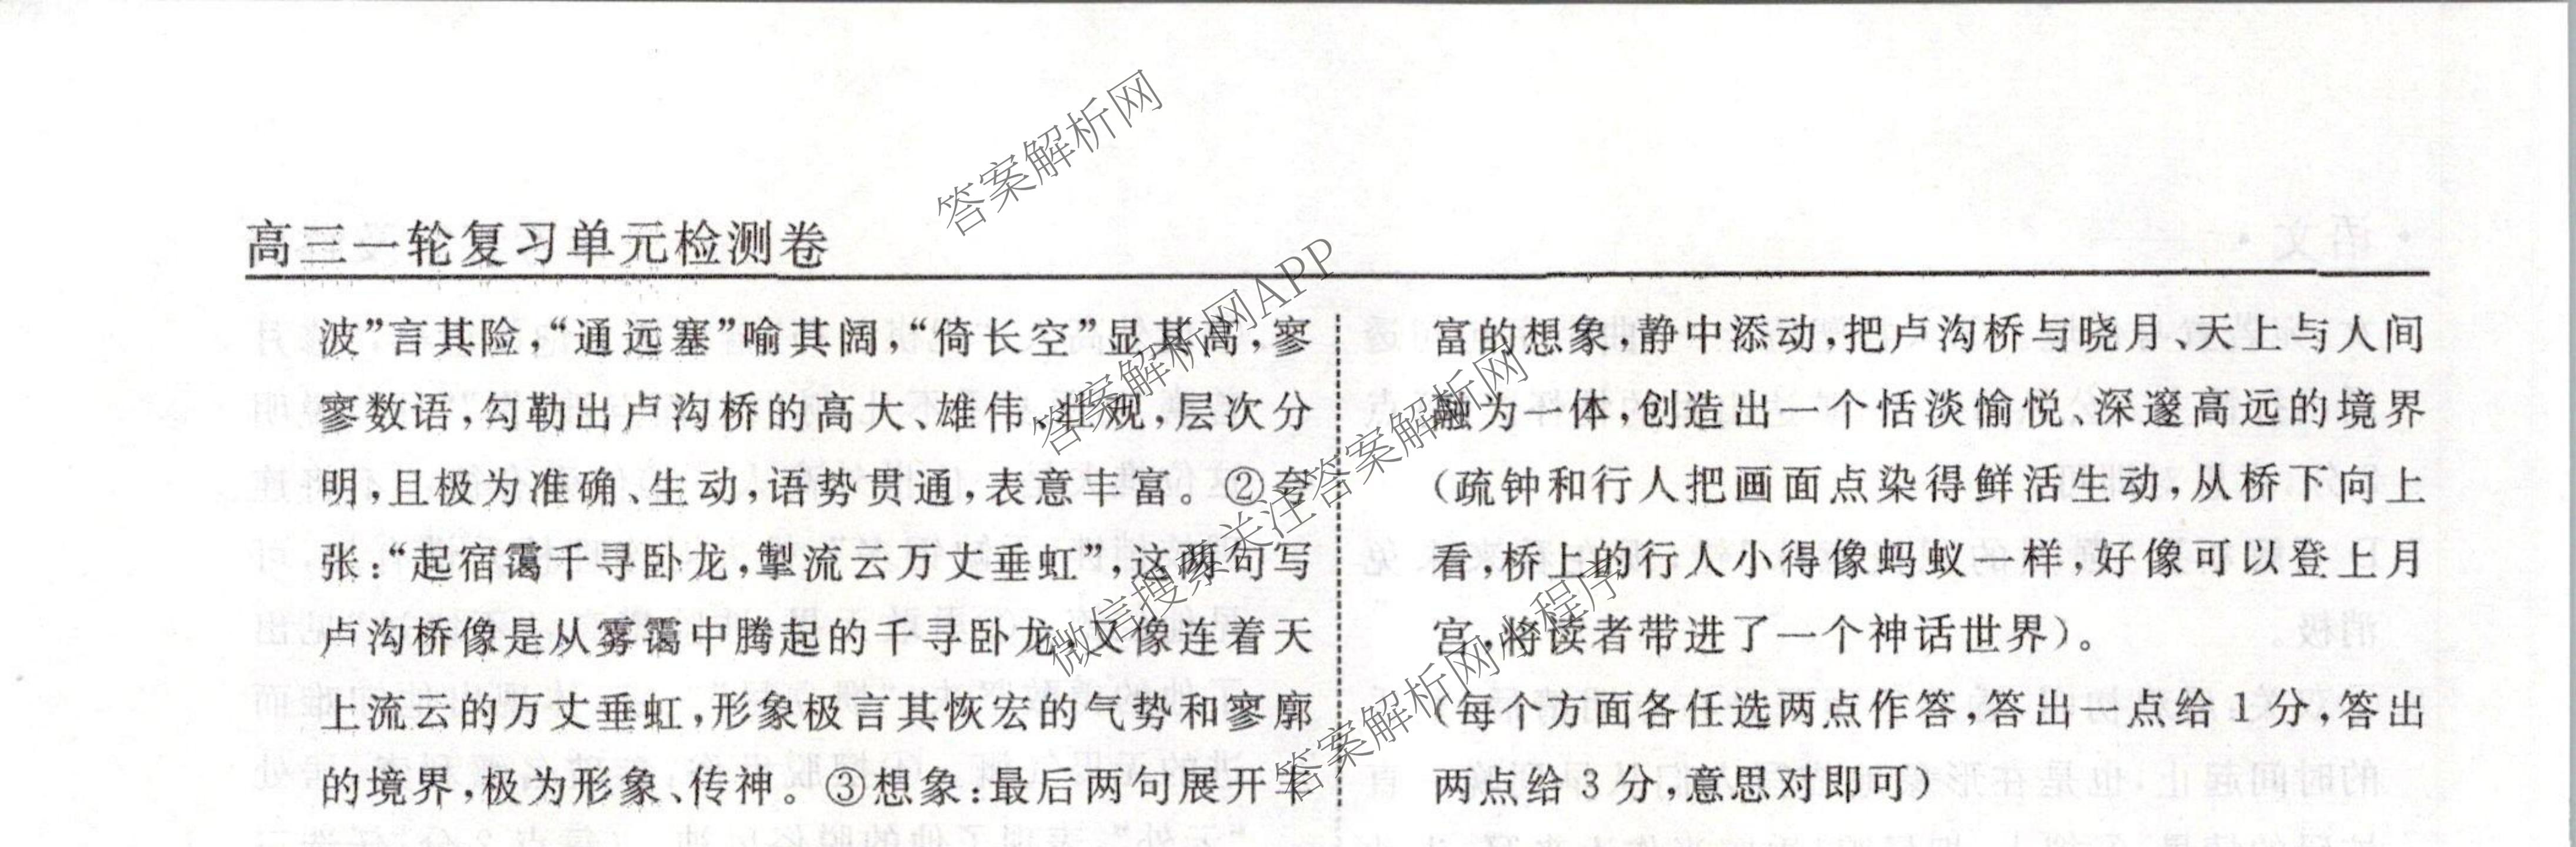 高三一轮复习单元检测卷
波”言其险,“通远塞”喻其阔,“倚长空”显其高,寥
寥数语,勾勒出卢沟桥的高大、雄伟、壮观,层次分
明,且极为准确、生动,语势贯通,表意丰富。②夸
张:“起宿霭千寻卧龙,掣流云万丈垂虹”,这两句写
卢沟桥像是从雾霭中腾起的千寻卧龙,又像连着天
上流云的万丈垂虹,形象极言其恢宏的气势和寥廓
的境界,极为形象、传神。③想象:最后两句展开丰
富的想象,静中添动,把卢沟桥与晓月、天上与人间
融为一体,创造出一个恬淡愉悦、深邃高远的境界
(疏钟和行人把画面点染得鲜活生动,从桥下向上
看,桥上的行人小得像蚂蚁一样,好像可以登上月
宫,将读者带进了一个神话世界)。
(每个方面各任选两点作答,答出一点给 1 分,答出
两点给 3 分,意思对即可)
答案解析网
答案解析网APP
微信搜索关注答案解析网
答案解析网小程序